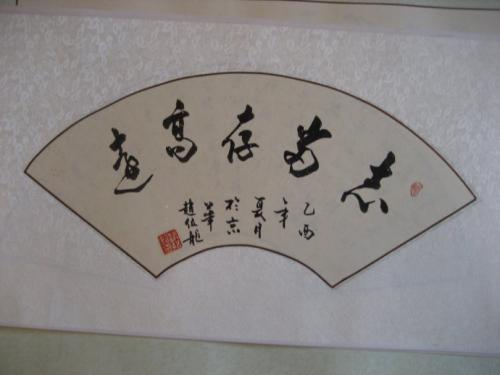 志當存高遠
乙酉
年
夏月
於京
華
趙龍